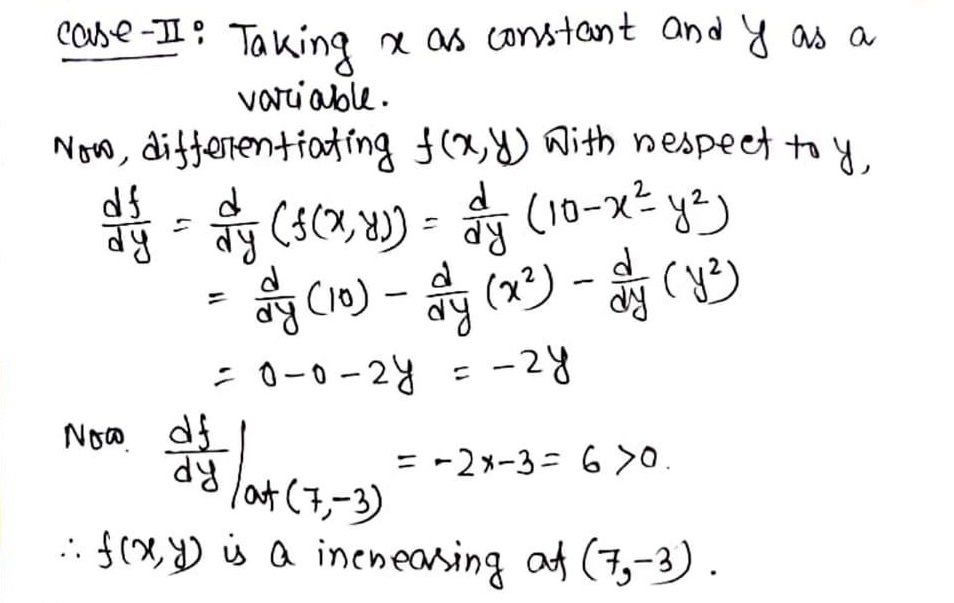 Case-II: Taking x as constant and y as a
variable.
Now, differentiating f(x,y) With respect to y,
df/dy = d/dy (f(x,y)) = d/dy (10-x²-y²)
= d/dy (10) - d/dy (x²) - d/dy (y²)
= 0-0-2y = -2y
Now. df/dy | at (7,-3) = -2×-3 = 6 >0.
∴ f(x,y) is a increasing at (7,-3).